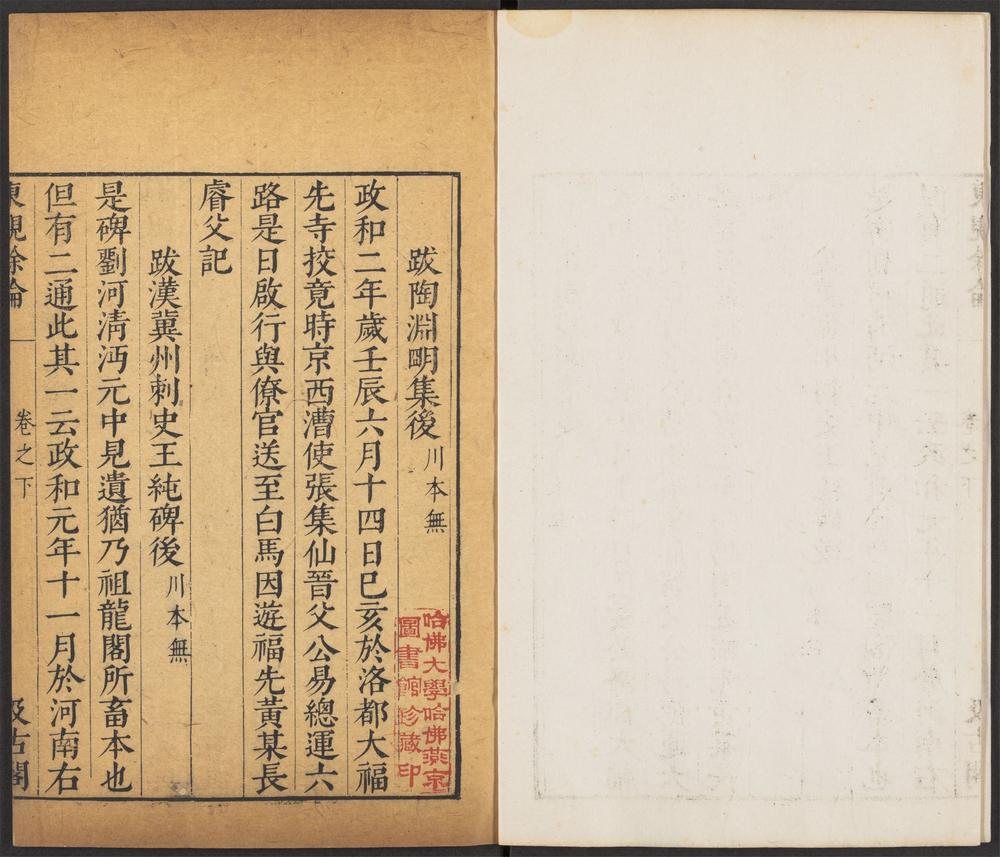 跋陶淵明集後川本無
政和二年歲壬辰六月十四日己亥於洛都大福
先寺挍竟時京西漕使張集仙晉父公易總運六
路是日啟行與僚官送至白馬因遊福先黃某長
睿父記
跋漢冀州刺史王純碑後川本無
是碑劉河淸沔元中見遺猶乃祖龍閣所畜本也
但有二通此其一云政和元年十一月於河南右
東觀餘論
卷之下
汲古閣
哈佛大學哈佛燕京
圖書館珍藏印